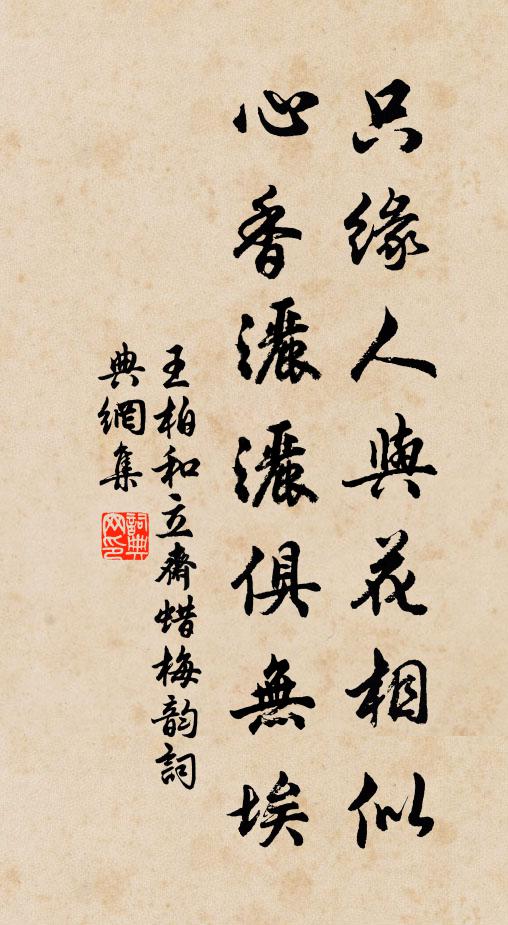 只缘人與花相似
心香灑灑俱無埃
王柏和立齋蜡梅韵詞
典網集
詞典
网印